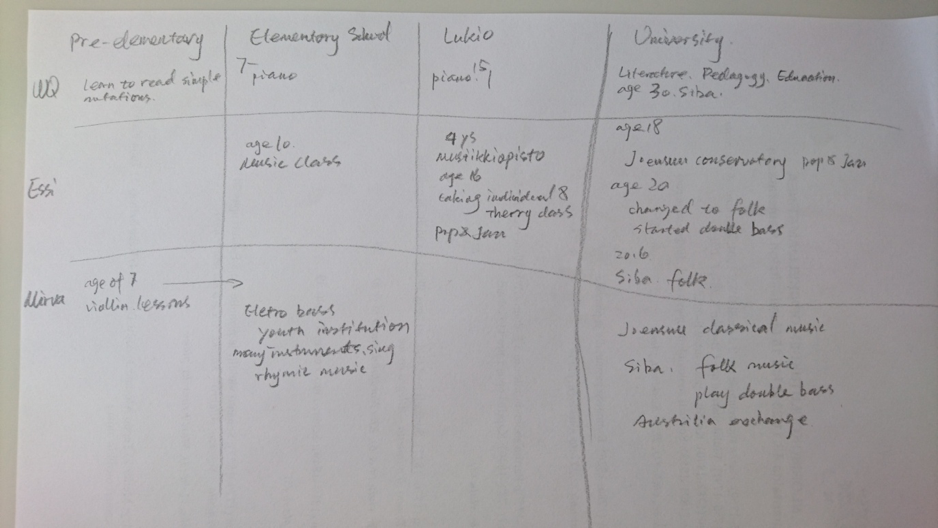 Pre-elementary
Elementary School
Lukio
University.
WQ
Learn to read simple
notations.
7-
piano
piano. 15
Literature. Pedagogy. Education.
age 30. Siba.
Essi
age 10.
Music class
4 ys
musiikkiopisto
age 16
taking individual &
Therry class
pop & Jazz
age 18
Joensuu conservatory pop & Jazz
age 20
changed to folk
started double bass
Siba folk.
Mirva
age of 7
viollin lessons
Eletro bass
youth institution
many instruments, sing
rhymic music
Joensuu classical music
Siba. folk music
play double bass
Austrilia exchange